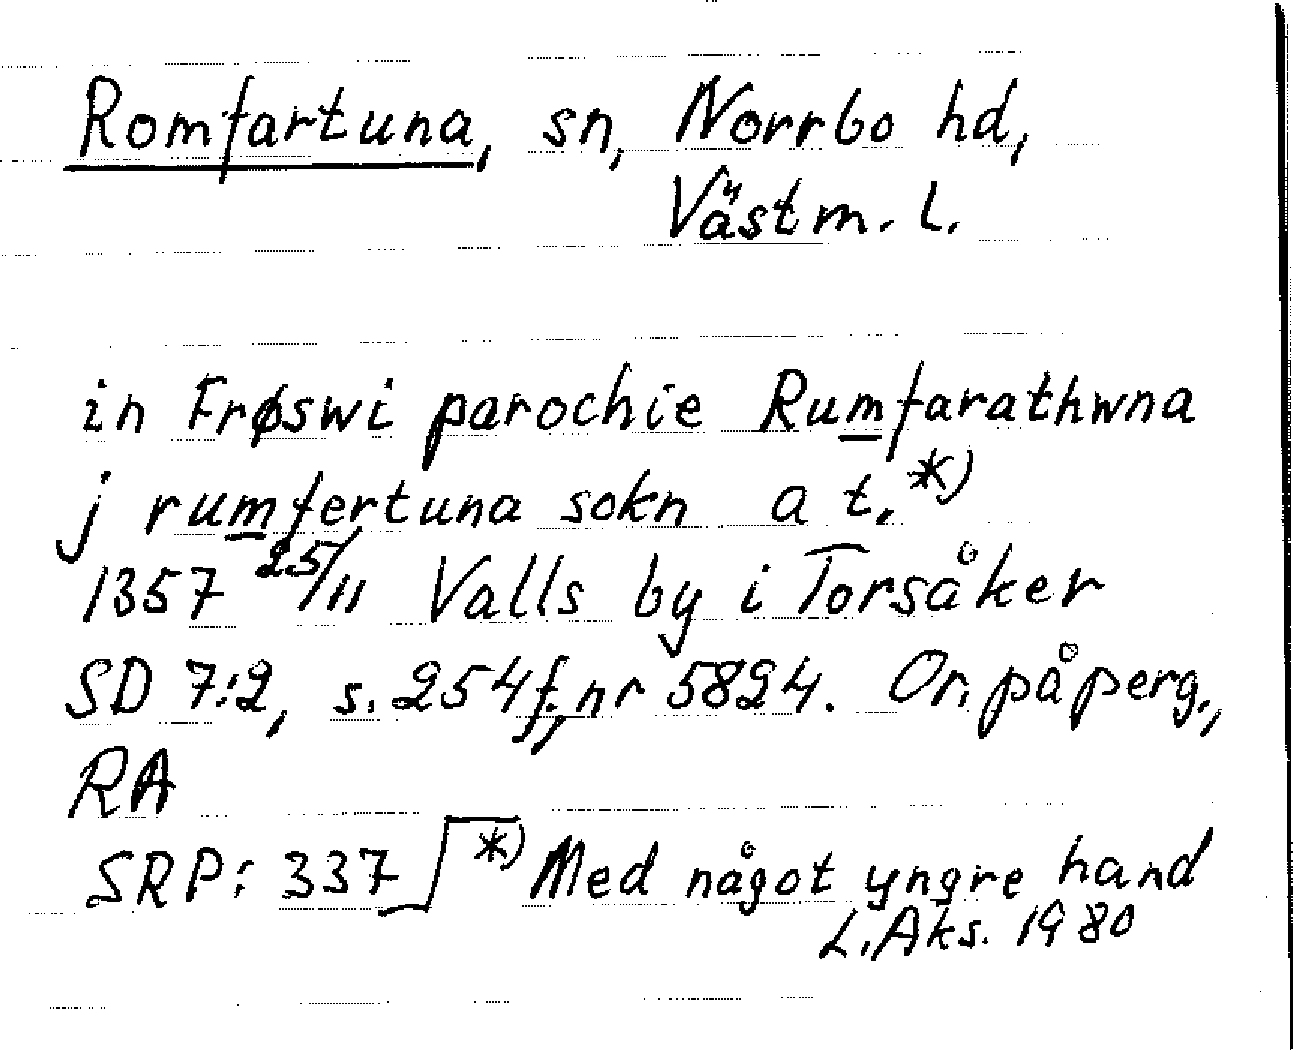 Romfartuna, sn, Norrbo hd,
Västm. l.
in Frøswi parochie Rumfarathwna
j rumfertuna sokn a t. *)
1357 25/11 Valls by i Torsåker
SD 7:2, s. 254 f., nr 5824. Or. på perg.,
RA
SRP: 337 *) Med något yngre hand
L. Aks. 1980